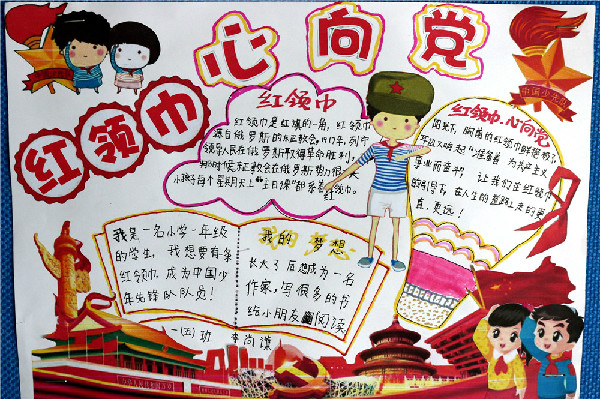 心向党
红领巾
中国少先队
红领巾
红领巾是红旗的一角，红领巾
源自俄罗斯的东正教会，1917年，列宁
领导人民在俄罗斯取得革命胜利，
那时候东正教会在俄罗斯势力很大
小孩子每个星期天上"主日课"都系着
红领巾。
红领巾心向党
阳光下，鲜艳的红领巾
"准备着 为共产主义
事业而奋斗" 让我们在红领巾
的引导下，在人生的道路上走的更
直.更远！
我是一名小学一年级
的学生，我想要有条
红领巾 成为中国少
年先锋队队员！
一(五)
我的 梦想
长大了后想成为一名
作家，写很多的书
给小朋友 阅读